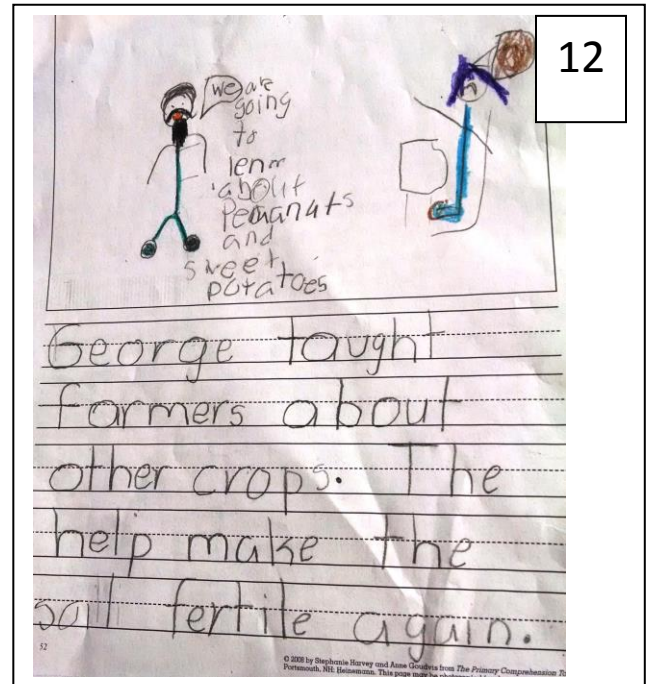 12
we are
going
to
lenr
about
Pemanuts
and
sweet
potatoes
George taught
farmers about
other crops. The
help make the
soil fertile again.
52
© 2008 by Stephanie Harvey and Anne Goudvis from The Primary Comprehension To
Portsmouth, NH: Heinemann. This page may be